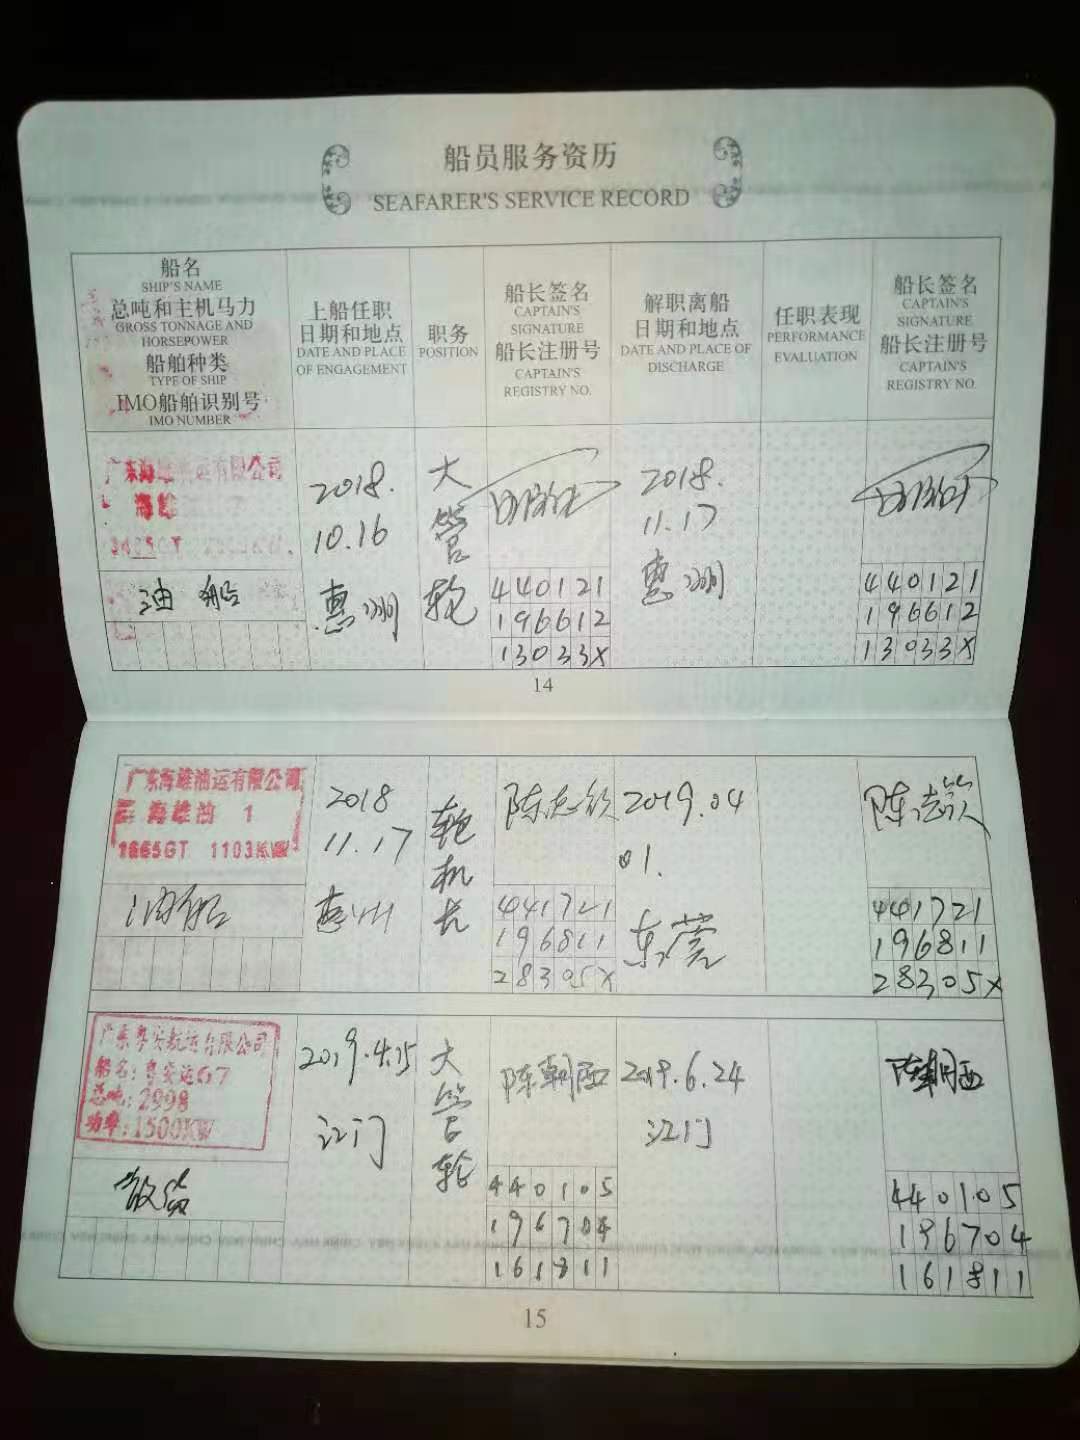 船员服务资历
SEAFARER'S SERVICE RECORD
船名
SHIP'S NAME
总吨和主机马力
GROSS TONNAGE AND
HORSEPOWER
船舶种类
TYPE OF SHIP
IMO船舶识别号
IMO NUMBER
上船任职
日期和地点
DATE AND PLACE
OF ENGAGEMENT
职务
POSITION
船长签名
CAPTAIN'S
SIGNATURE
船长注册号
CAPTAIN'S
REGISTRY NO.
解职离船
日期和地点
DATE AND PLACE OF
DISCHARGE
任职表现
PERFORMANCE
EVALUATION
船长签名
CAPTAIN'S
SIGNATURE
船长注册号
CAPTAIN'S
REGISTRY NO.
广东海雄油运有限公司
海雄
油船
2018.
10.16
惠州
大管轮
440121
196612
13033X
2018.
11.17
惠州
440121
196612
13033X
14
广东海雄油运有限公司
海雄油 1
1665GT 1103KW
油船
2018
11.17
惠州
轮机长
陈志钦
441721
196811
28305X
2019.04
01.
东莞
陈志钦
441721
196811
28305X
广东粤安航运有限公司
船名:粤安运67
总吨:2998
功率:1500KW
散货
2019.4.15
江门
大管轮
陈朝西
440105
196704
161811
2019.6.24
江门
陈朝西
440105
196704
161811
15